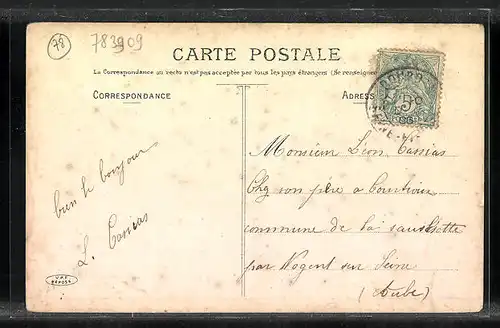 78
783909
CARTE POSTALE
La Correspondance au verso n'est pas acceptée par tous les pays étrangers (Se renseigner
CORRESPONDANCE
ADRESS
5
Monsieur Léon Cassias
Chez son père a
commune de la
par Nogent sur Seine
(Aube)
bien le bonjour
L. Cassias
DÉPOSÉ